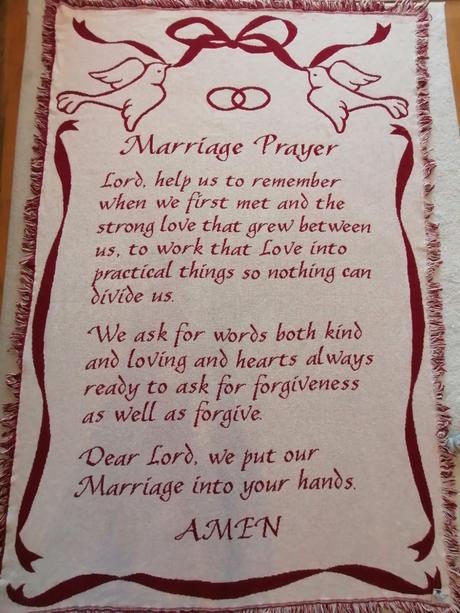 Marriage Prayer
Lord, help us to remember
when we first met and the
strong love that grew between
us, to work that Love into
practical things so nothing can
divide us.
We ask for words both kind
and loving and hearts always
ready to ask for forgiveness
as well as forgive.
Dear Lord, we put our
Marriage into your hands.
AMEN